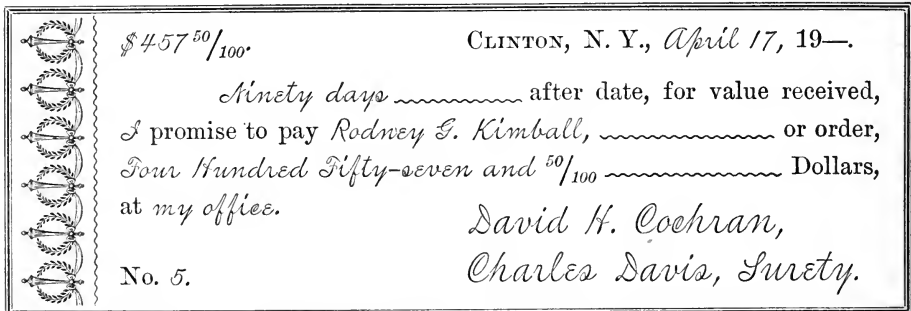 $457 50/100. CLINTON, N. Y., April 17, 19—.
Ninety days after date, for value received,
I promise to pay Rodney G. Kimball, or order,
Four Hundred Fifty-seven and 50/100 Dollars,
at my office.
David H. Cochran,
No. 5. Charles Davis, Surety.